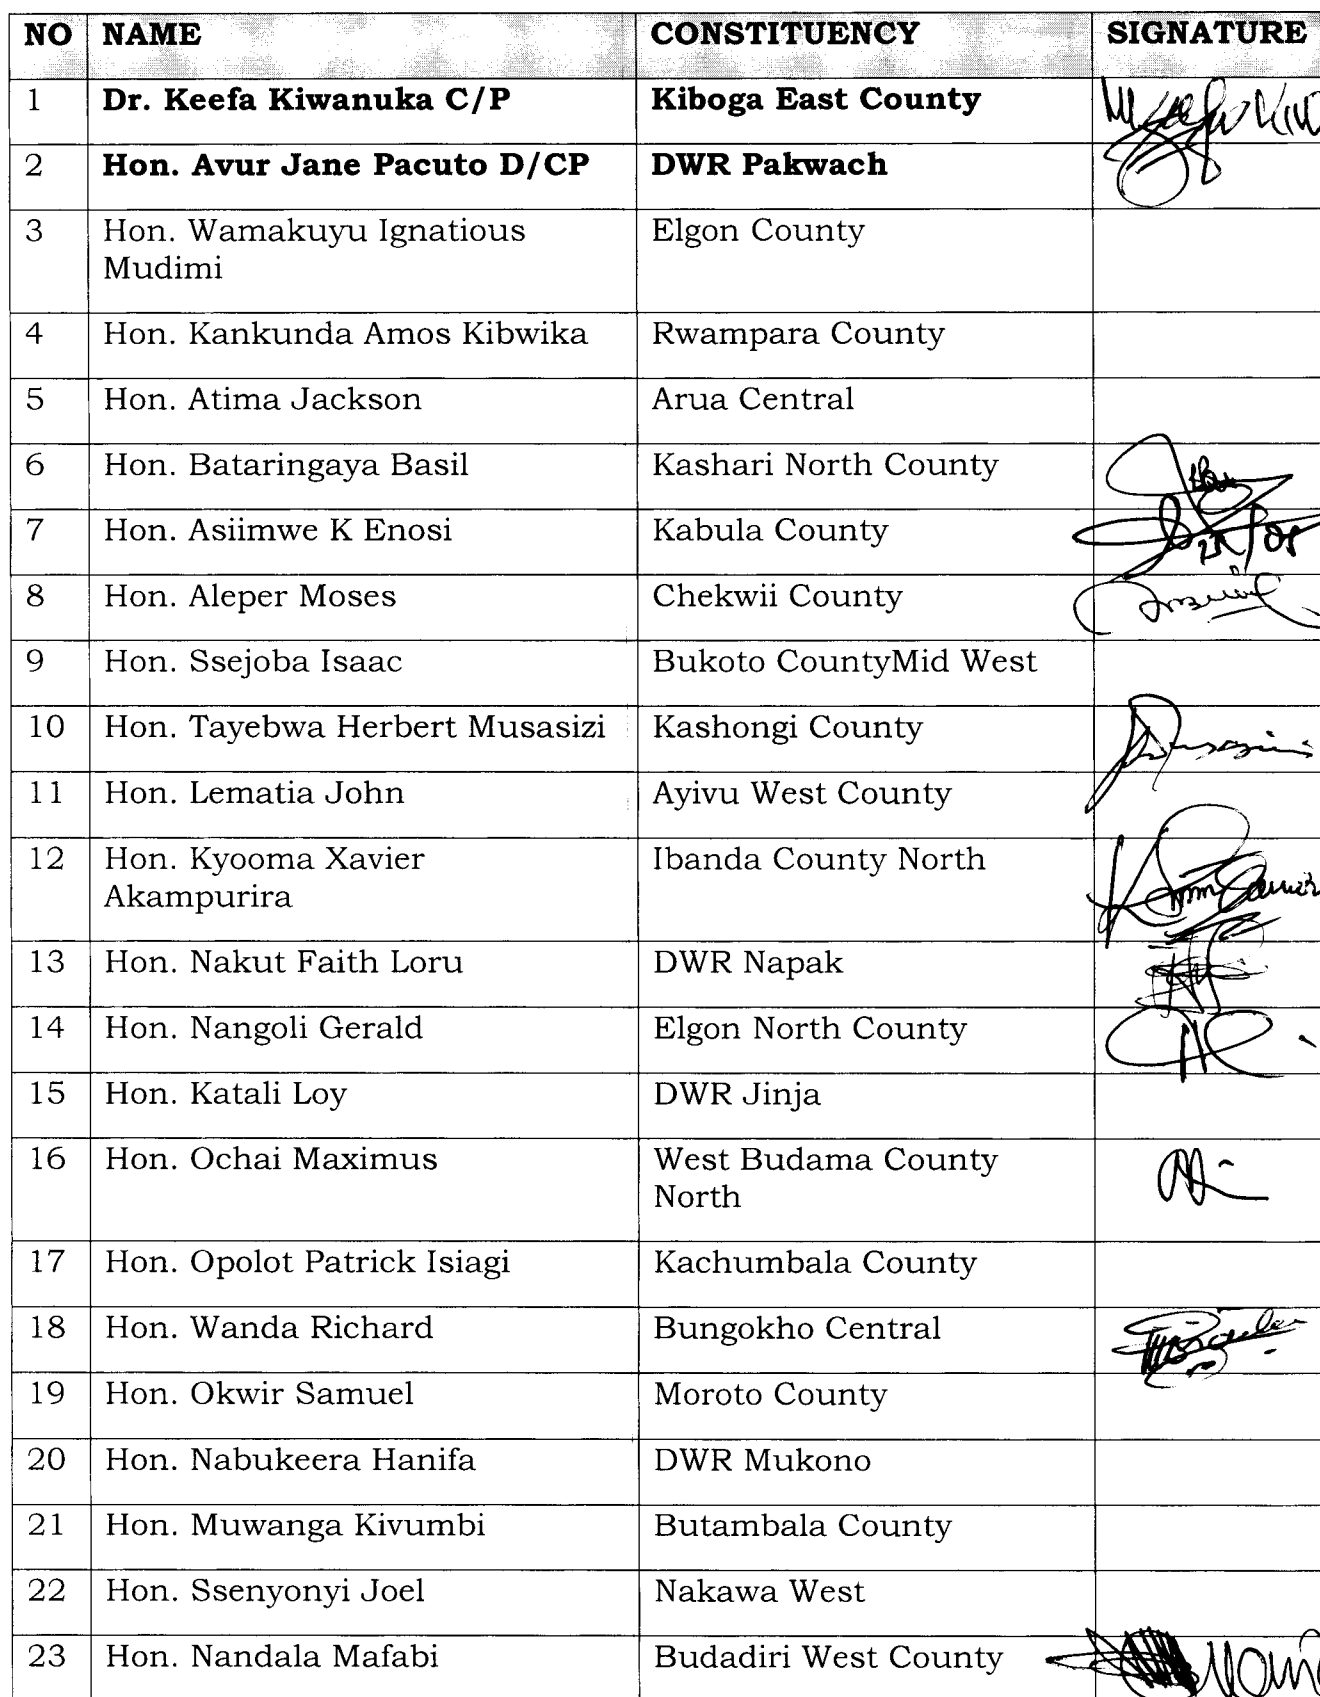 NO NAME CONSTITUENCY SIGNATURE
1 Dr. Keefa Kiwanuka C/P Kiboga East County
2 Hon. Avur Jane Pacuto D/CP DWR Pakwach
3 Hon. Wamakuyu Ignatious Elgon County
Mudimi
4 Hon. Kankunda Amos Kibwika Rwampara County
5 Hon. Atima Jackson Arua Central
6 Hon. Bataringaya Basil Kashari North County
7 Hon. Asiimwe K Enosi Kabula County
8 Hon. Aleper Moses Chekwii County
9 Hon. Ssejoba Isaac Bukoto CountyMid West
10 Hon. Tayebwa Herbert Musasizi Kashongi County
11 Hon. Lematia John Ayivu West County
12 Hon. Kyooma Xavier Ibanda County North
Akampurira
13 Hon. Nakut Faith Loru DWR Napak
14 Hon. Nangoli Gerald Elgon North County
15 Hon. Katali Loy DWR Jinja
16 Hon. Ochai Maximus West Budama County
North
17 Hon. Opolot Patrick Isiagi Kachumbala County
18 Hon. Wanda Richard Bungokho Central
19 Hon. Okwir Samuel Moroto County
20 Hon. Nabukeera Hanifa DWR Mukono
21 Hon. Muwanga Kivumbi Butambala County
22 Hon. Ssenyonyi Joel Nakawa West
23 Hon. Nandala Mafabi Budadiri West County